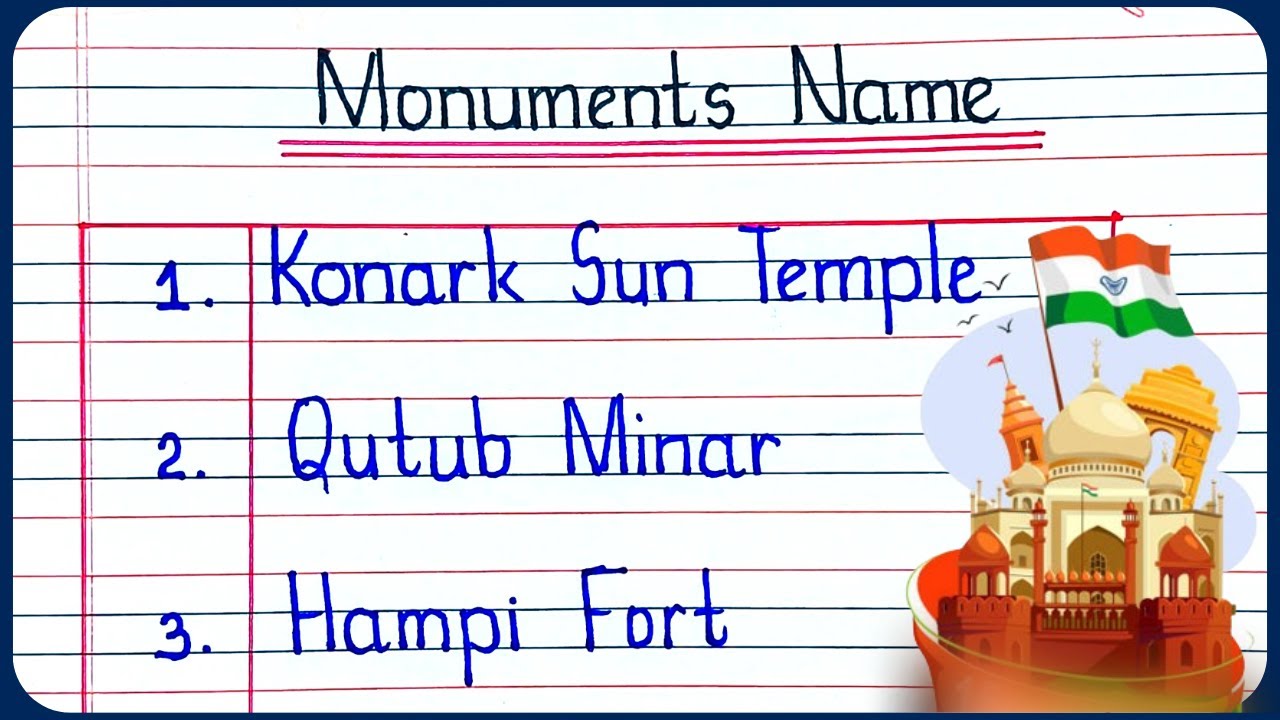 Monuments Name
1. Konark Sun Temple
2. Qutub Minar
3. Hampi Fort